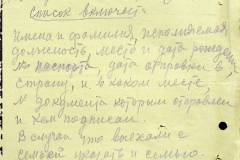 Список включает
имена и фамилия, исполняемая
должность, место и дата рождения
№ паспорта, дата отправки в
страну, и в каком месте,
№ документа которым отправлен
и кем подписан.
В случаи что выехали с
семьей указать и семью.